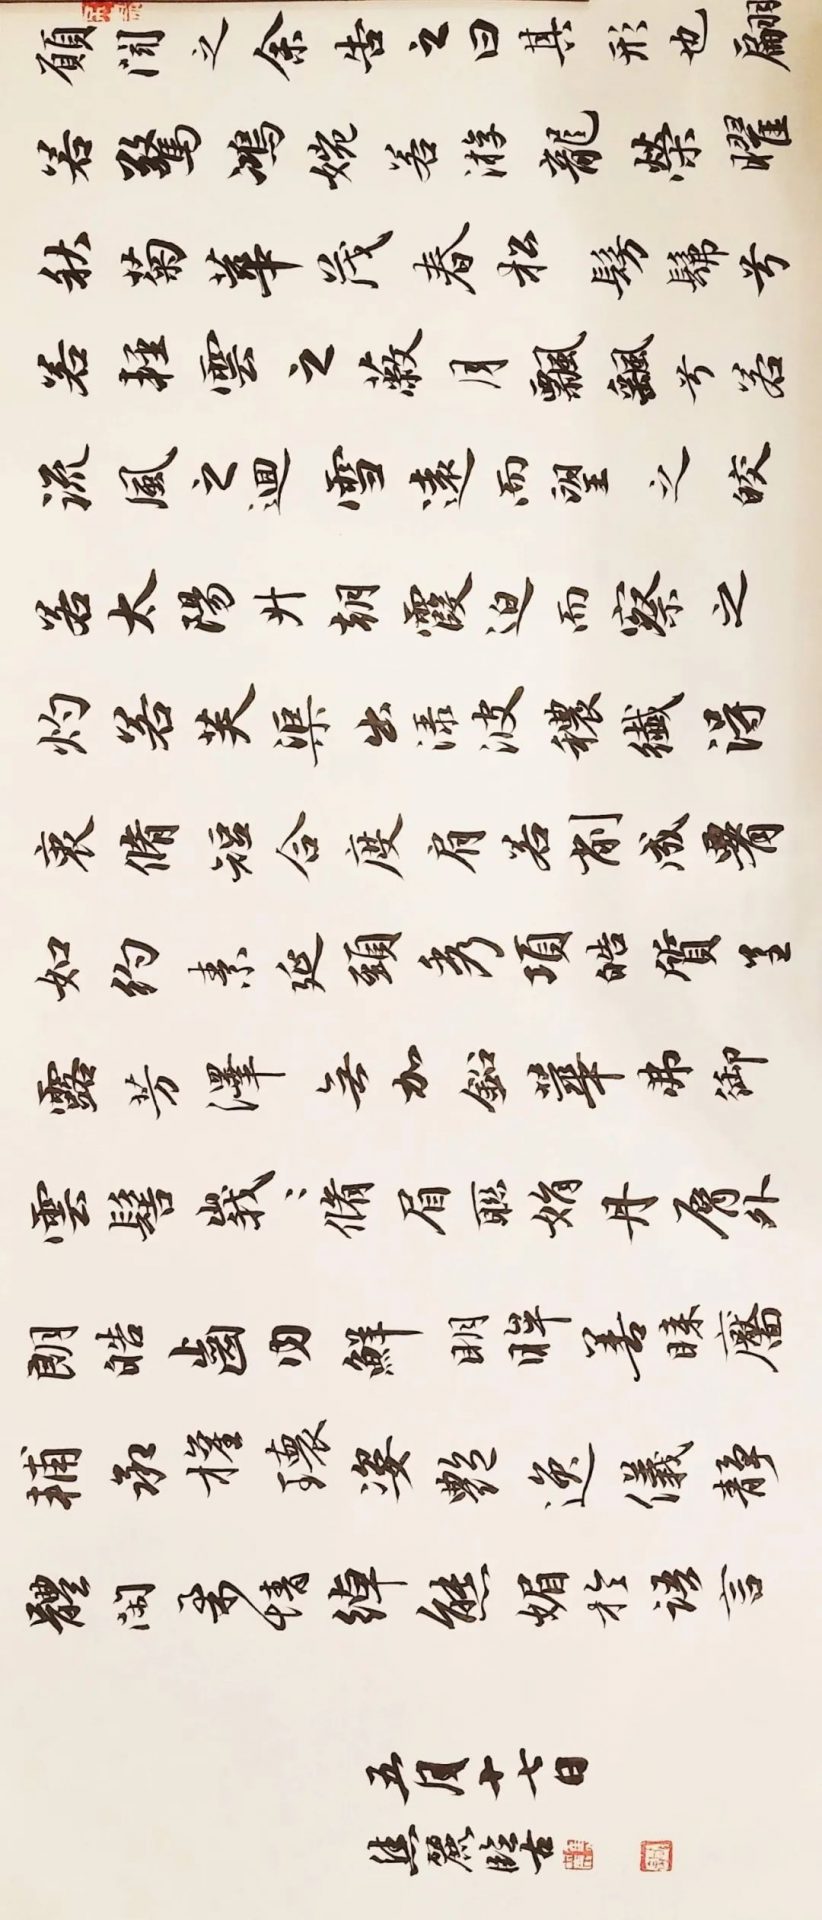 願聞之余告之曰其形也翩
若驚鴻婉若游龍榮曜
秋菊華茂春松髣髴兮
若輕雲之蔽月飄飖兮若
流風之迴雪遠而望之皎
若太陽升朝霞迫而察之
灼若芙渠出渌波穠纖得
衷脩短合度肩若削成署
如約素延頸秀項皓質呈
露芳澤無加鉛華弗御
雲髻峩〻脩眉聯娟丹脣外
朗皓齒內鮮明眸善睞靨
輔承權瓌姿艷逸儀靜
體閑柔情綽態媚於語言
五月十七日
焦麗臨古